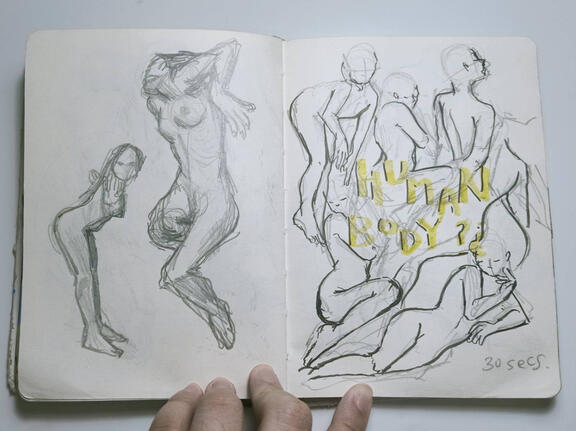 HUMAN
BODY?!
30 secs.